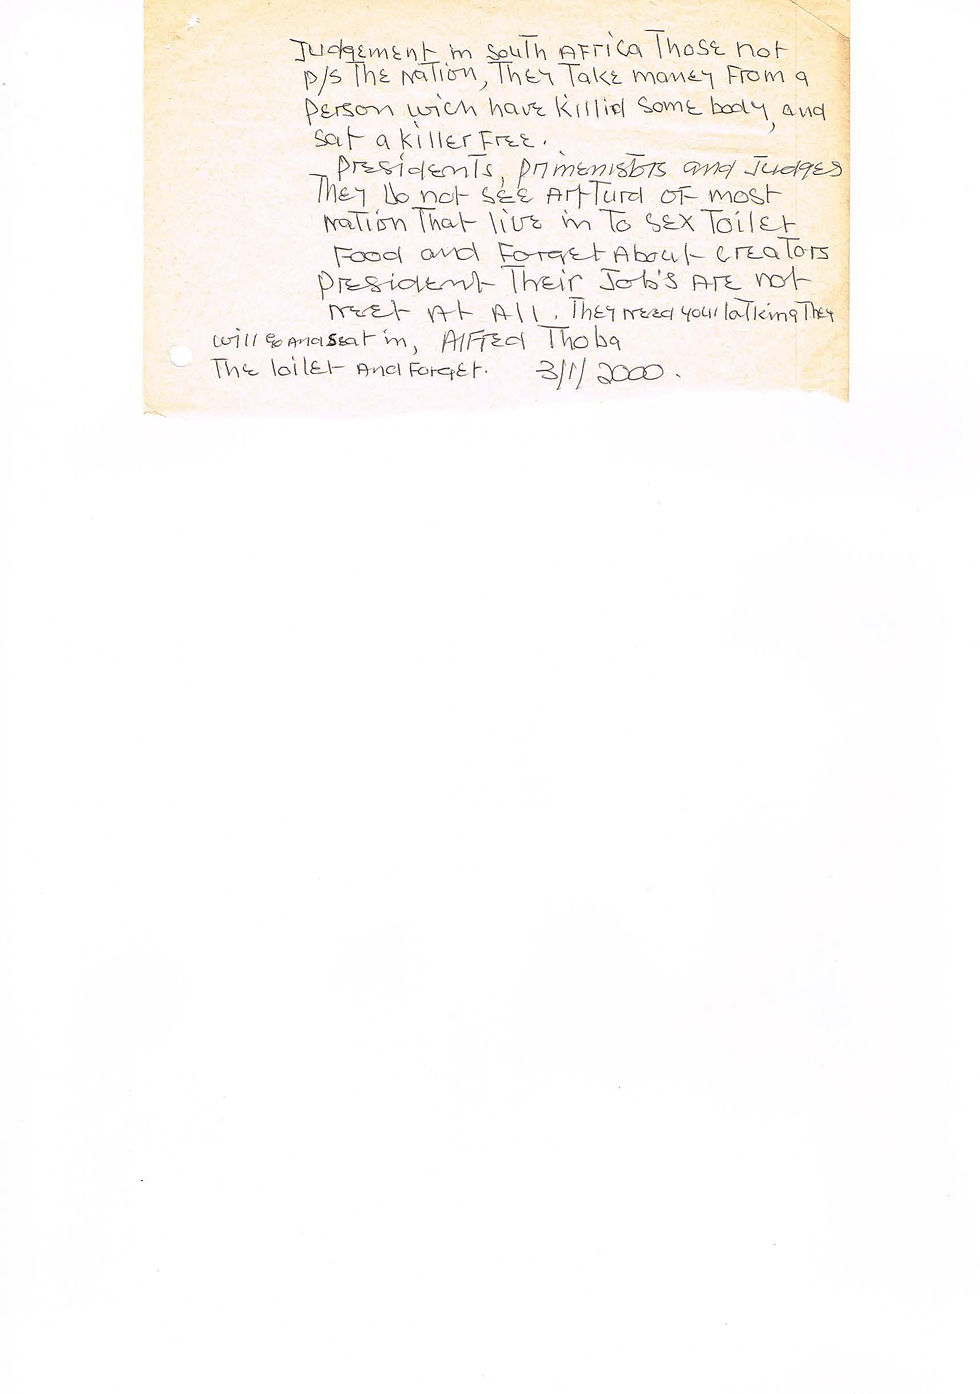 Judgement in South Africa Those not
p/s The Nation, They Take money From a
person wich have Killid Some body, and
Sat a Killer Free.
Presidents, primenistors and Judges
They Do not See ArtTurd of most
Nation That live in To Sex Toilet
Food and Forget About Creators
President Their Job's Are not
meet At All. They need you talking They
will go And Seat in, Alfred Thoba
The toilet And Forget. 3/1/2000.